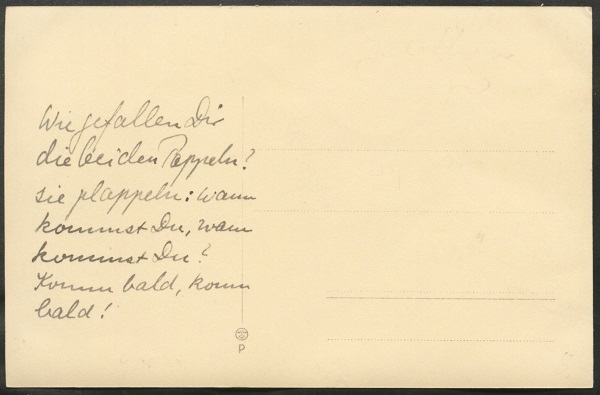 Wie gefallen Dir
die beiden Pappeln?
sie plappeln: wann
kommst Du, wann
kommst Du?
Komm bald, komm
bald!
P